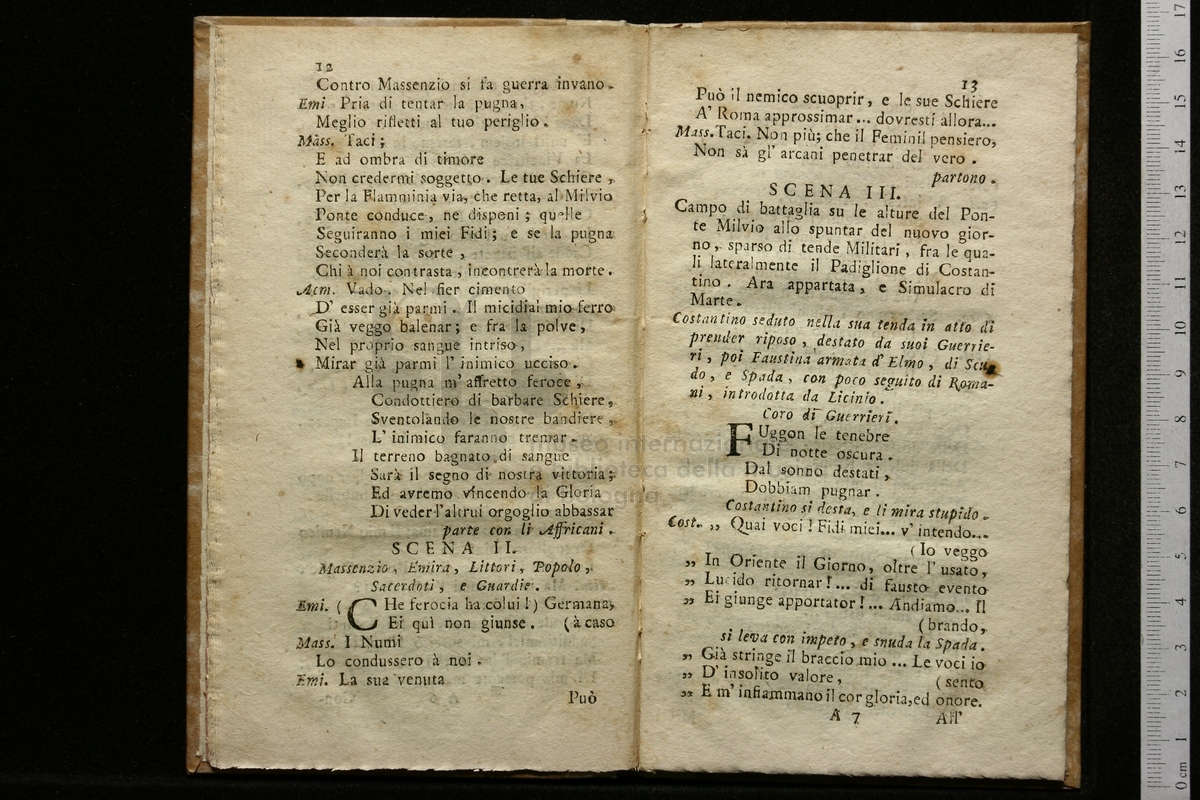 12
Contro Massenzio si fa guerra invano.
Emi. Pria di tentar la pugna,
Meglio rifletti al tuo periglio.
Mass. Taci;
E ad ombra di timore
Non credermi soggetto. Le tue Schiere,
Per la Flamminia via, che retta, al Milvio
Ponte conduce, ne disponi; quelle
Seguiranno i miei Fidi; e se la pugna
Seconderà la sorte,
Chi à noi contrasta, incontrerà la morte.
Acm. Vado. Nel fier cimento
D' esser già parmi. Il micidial mio ferro
Già veggo balenar; e fra la polve,
Nel proprio sangue intriso,
Mirar già parmi l' inimico ucciso.
Alla pugna m' affretto feroce,
Condottiero di barbare Schiere,
Sventolando le nostre bandiere,
L' inimico faranno tremar.
Il terreno bagnato di sangue
Sarà il segno di nostra vittoria;
Ed avremo vincendo la Gloria
Di veder l'altrui orgoglio abbassar
parte con li Affricani.
SCENA II.
Massenzio, Emira, Littori, Popolo,
Sacerdoti, e Guardie.
Emi. (CHe ferocia ha colui!) Germana,
Ei quì non giunse. (à caso
Mass. I Numi
Lo condussero à noi.
Emi. La sua venuta
Può
13
Può il nemico scuoprir, e le sue Schiere
A' Roma approssimar... dovresti allora...
Mass. Taci. Non più; che il Feminil pensiero,
Non sà gl' arcani penetrar del vero.
partono.
SCENA III.
Campo di battaglia su le alture del Pon-
te Milvio allo spuntar del nuovo gior-
no, sparso di tende Militari, fra le qua-
li lateralmente il Padiglione di Costan-
tino. Ara appartata, e Simulacro di
Marte.
Costantino seduto nella sua tenda in atto di
prender riposo, destato da suoi Guerrie-
ri, poi Faustina armata d' Elmo, di Scu-
do, e Spada, con poco seguito di Roma-
ni, introdotta da Licinio.
Coro di Guerrieri.
FUggon le tenebre
Di notte oscura.
Dal sonno destati,
Dobbiam pugnar.
Costantino si desta, e li mira stupido.
Cost. „ Quai voci! Fidi miei... v' intendo...
(Io veggo
„ In Oriente il Giorno, oltre l' usato,
„ Lucido ritornar!... di fausto evento
„ Ei giunge apportator!... Andiamo... Il
(brando,
si leva con impeto, e snuda la Spada.
„ Già stringe il braccio mio... Le voci io
„ D' insolito valore, (sento
„ E m' infiammano il cor gloria, ed onore.
A 7 All'
museo internazionale
biblioteca della musica
di bologna
17
16
15
14
13
12
11
10
9
8
7
6
5
4
3
2
1
0 cm